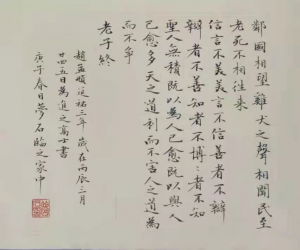 鄰國相望雞犬之聲相聞民至
老死不相往來
信言不美美言不信善者不辯
辯者不善知者不博:者不知
聖人無積既以為人已愈既以與人
已愈多天之道利而不害人之道為
而不爭
老子終
趙孟頫延祐三年歲在丙辰三月
廿四五日為進之高士書
庚子春日夢石臨之家中